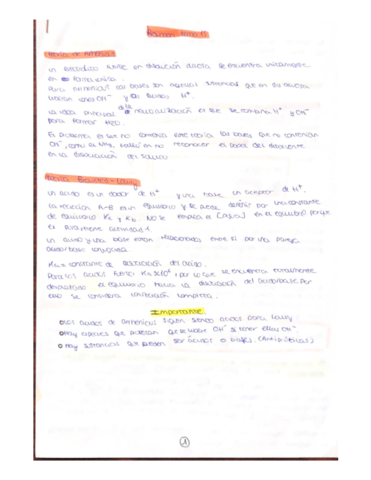 Resumen Tema 12
Teoría de Arrhenius
Un electrolito fuerte en disolución acuosa se encuentra únicamente
en forma iónica.
Para Arrhenius las bases son aquellas sustancias que en disolución
liberan iones OH⁻ y los ácidos H⁺.
La idea principal de la neutralización es que se combinan H⁺ y OH⁻
para formar H₂O
El problema es que no contempla esta teoría las bases que no contenían
OH⁻, como el NH₃, falló en no reconocer el papel del disolvente
en la disociación del soluto
Teoría Brønsted-Lowry
Un ácido es un dador de H⁺ y una base un aceptor de H⁺.
La reacción A-B es un equilibrio y se puede definir por una constante
de equilibrio Ka y Kb. No se emplea el [H₂O] en el equilibrio porque
es
Un ácido y una base están relacionados entre sí por una pareja
ácido base conjugada.
Ka = constante de disociación del ácido.
Para los ácidos fuertes por lo que se encuentra totalmente
el equilibrio hacia la disociación del ácido/base. Por
eso se considera completa.
Importante
Los ácidos de Arrhenius siguen siendo ácidos para Lowry
Hay especies que pueden OH⁻ sin tener ellas OH⁻
Hay sustancias que pueden ser ácidos o bases. (Anfipróticas)
1